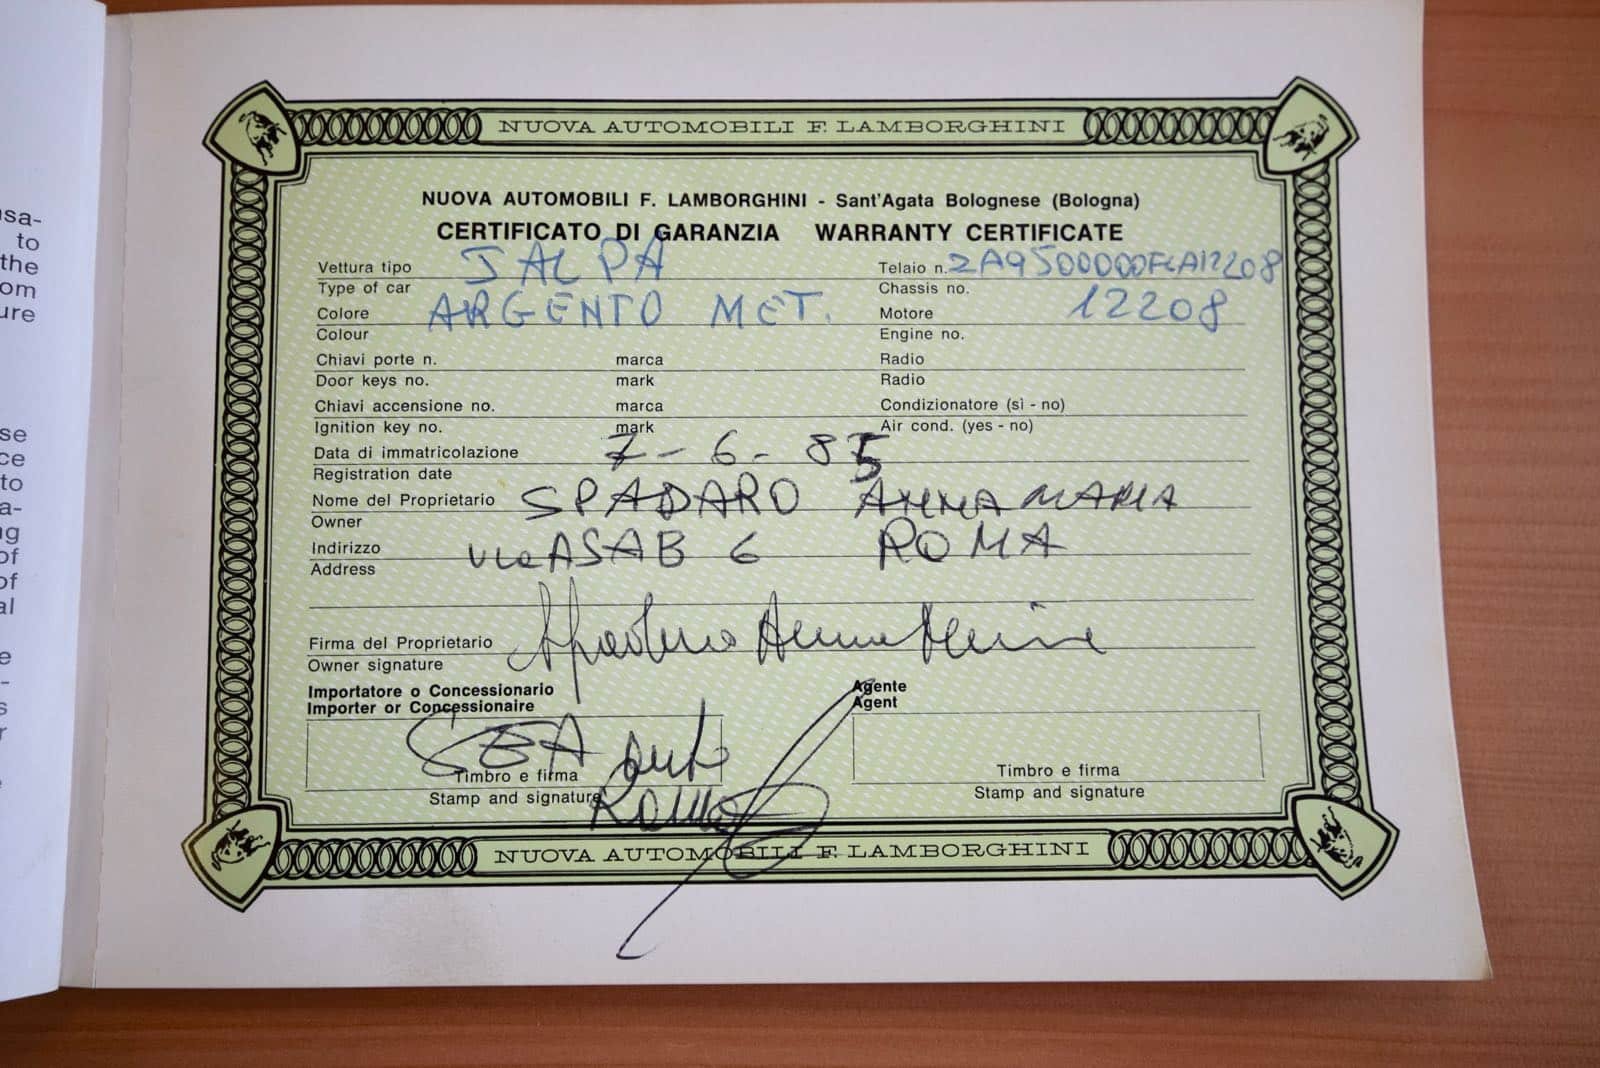 sa-
to
the
om
ure
se
ce
to
a-
ng
of
of
al
e
-
s
r
NUOVA AUTOMOBILI F. LAMBORGHINI
NUOVA AUTOMOBILI F. LAMBORGHINI - Sant'Agata Bolognese (Bologna)
CERTIFICATO DI GARANZIA WARRANTY CERTIFICATE
Vettura tipo JALPA Telaio n.
Type of car Chassis no.
Colore ARGENTO MET. Motore 12208
Colour Engine no.
Chiavi porte n. marca Radio
Door keys no. mark Radio
Chiavi accensione no. marca Condizionatore (sì - no)
Ignition key no. mark Air cond. (yes - no)
Data di immatricolazione 7-6-85
Registration date
Nome del Proprietario SPADARO ANNAMARIA
Owner
Indirizzo Vle ASAB 6 ROMA
Address
Firma del Proprietario Spadaro Anna Maria
Owner signature
Importatore o Concessionario Agente
Importer or Concessionaire Agent
SEA auto
Timbro e firma Timbro e firma
Stamp and signature Stamp and signature
Roma
NUOVA AUTOMOBILI F. LAMBORGHINI